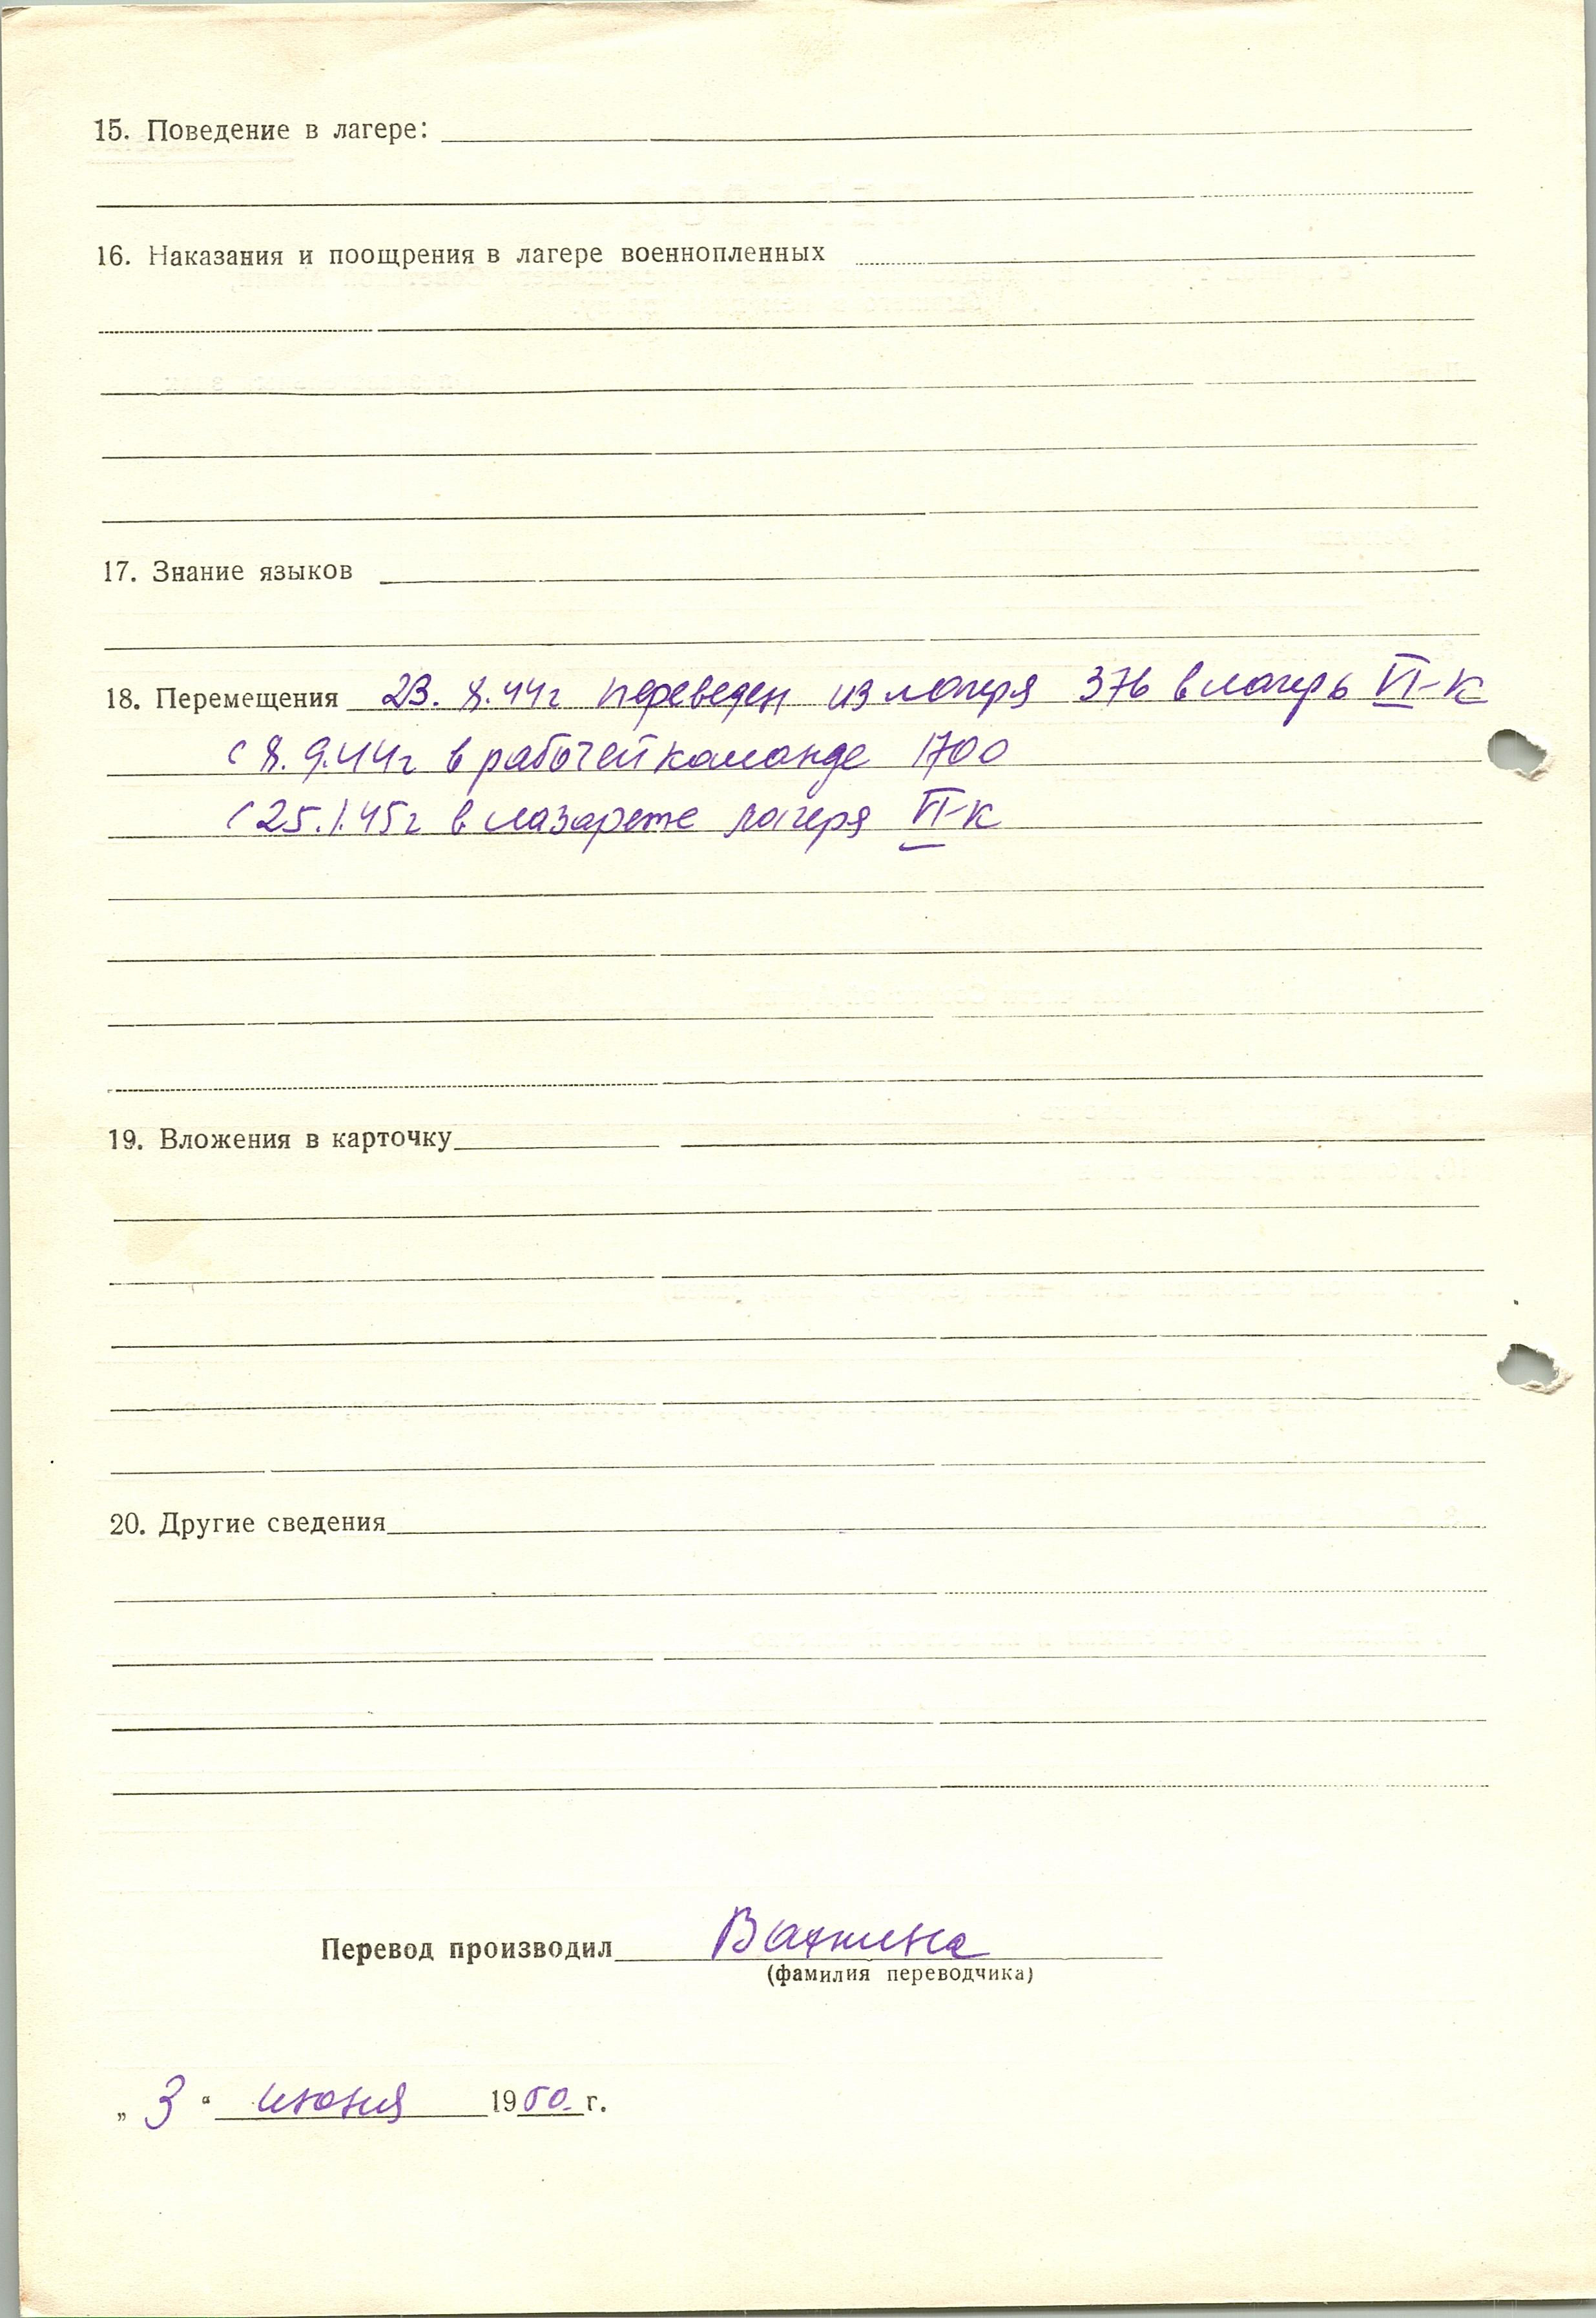 15. Поведение в лагере:
16. Наказания и поощрения в лагере военнопленных
17. Знание языков
18. Перемещения 23. 8. 44г переведен из лагеря 376 в лагерь VI-К
с 8. 9. 44г в рабочей команде 1700
с 25. 1. 45г в лазарете лагеря VI-К
19. Вложения в карточку
20. Другие сведения
Перевод производил
(фамилия переводчика)
„ 3 “ июня 1950. г.